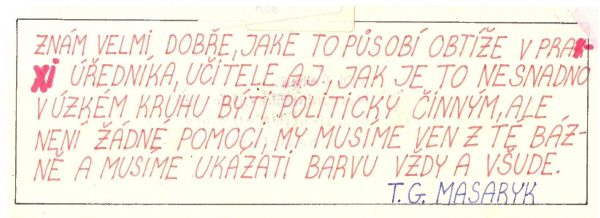 ZNÁM VELMI DOBŘE, JAKE TO PŮSOBÍ OBTÍŽE V PRA-
XI ÚŘEDNÍKA, UČITELE AJ, JAK JE TO NESNADNO
V ÚZKÉM KRUHU BÝTI POLITICKÝ ČINNÝM, ALE
NENÍ ŽÁDNÉ POMOCI, MY MUSÍME VEN Z TÉ BÁZ-
NĚ A MUSÍME UKÁZATI BARVU VŽDY A VŠUDE.
T. G. MASARYK